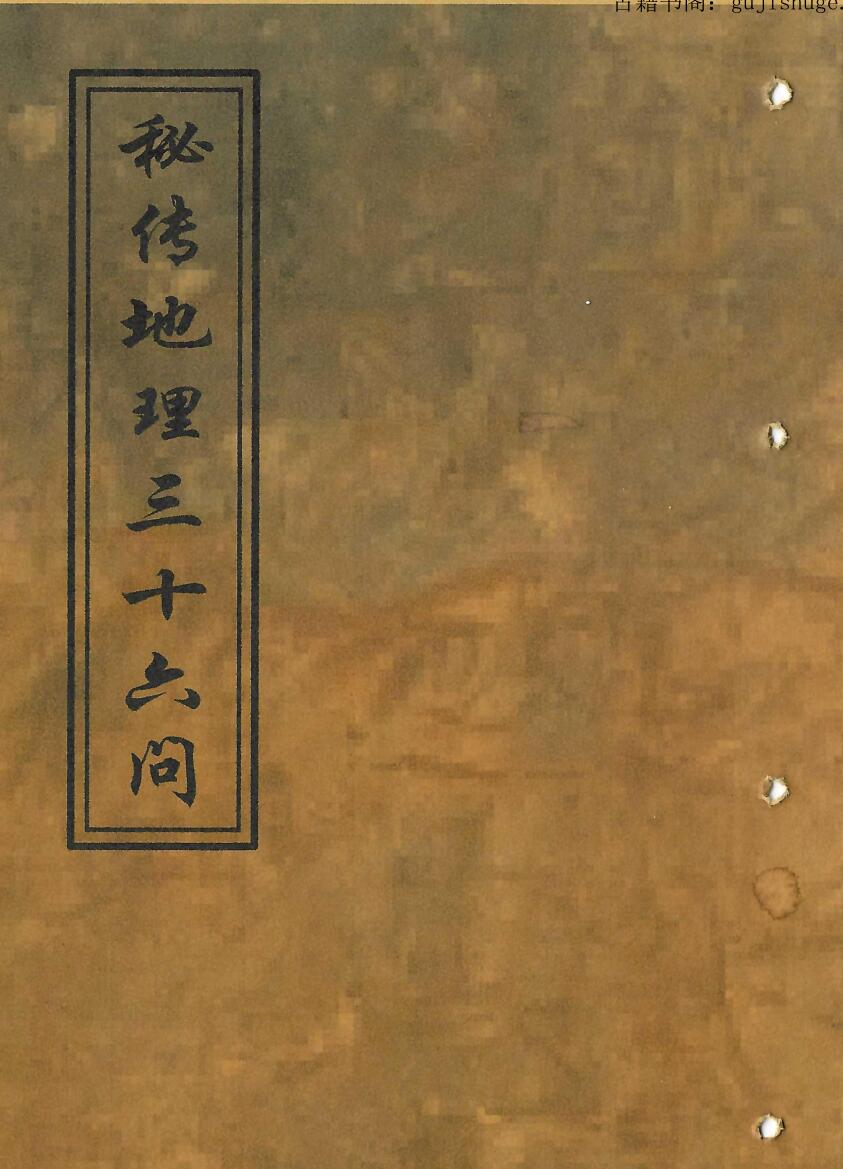 古籍书阁：gujishuge.
秘传地理三十六问